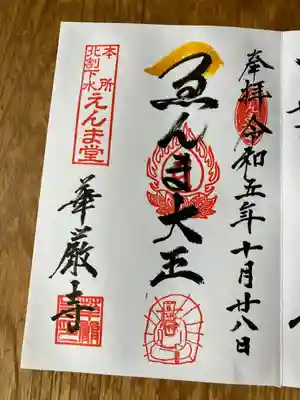 奉拝 令和五年十月廿八日
ゑんま大王
本所
北割下水
えんま堂
華厳寺